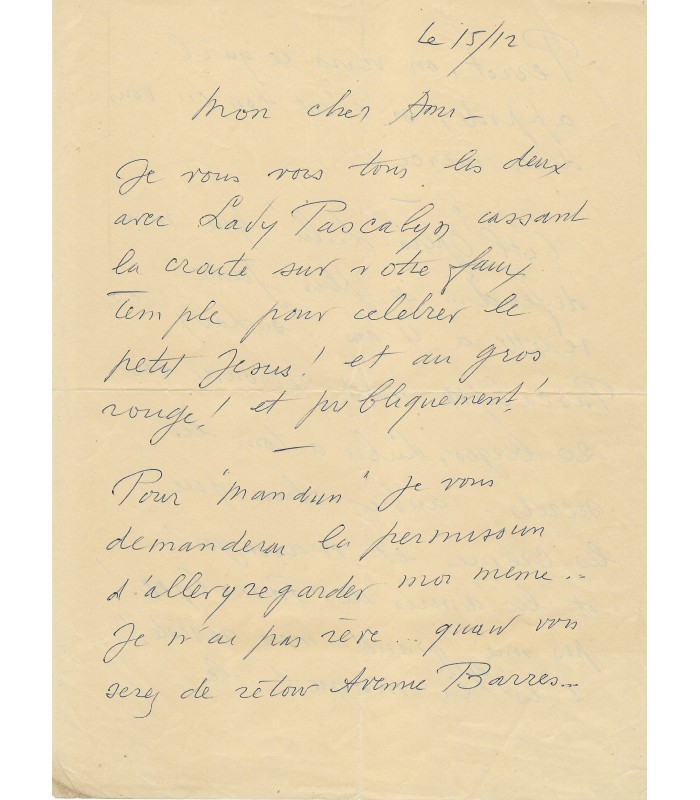 Le 15/12
Mon cher Ami -
Je vous vois tous les deux
avec Lady Pascalyn cassant
la croute sur votre faux
Temple pour celebrer le
petit Jesus! et au gros
rouge! et publiquement!
Pour "mandun" je vous
demanderai la permission
d'aller y regarder moi meme ..
Je n'ai pas rêve ... quand vous
serez de retour Avenue Barres...